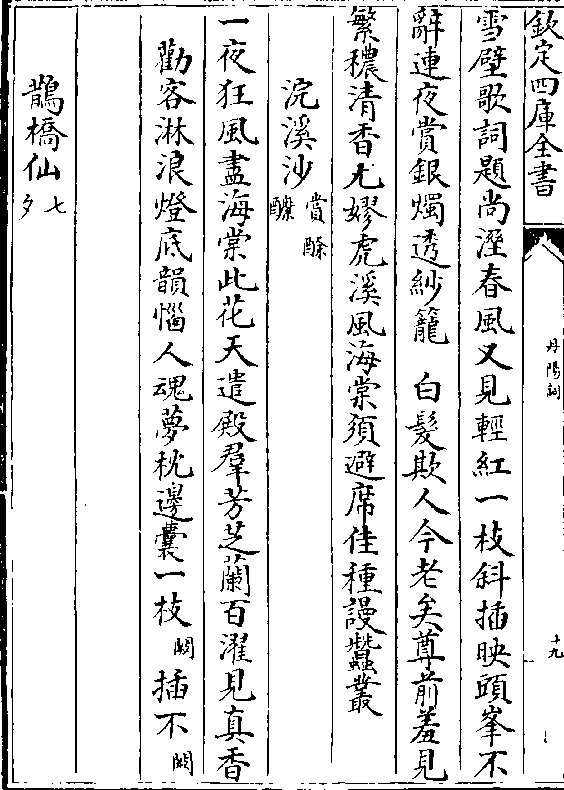 欽定四庫全書
丹陽詞
十九
雪壁歌詞題尚溼春風又見輕紅一枝斜插映頭峯不
辭連夜賞銀燭透紗籠　白髮欺人今老矣尊前羞見
繁穠清香尤嫪虎溪風海棠須避席佳種謾蠶叢
浣溪沙賞酴醿
一夜狂風盡海棠此花天遣殿羣芳芝蘭百濯見真香
勸客淋浪燈底韻惱人魂夢枕邊囊一枝闕插不闕
鵲橋仙七夕